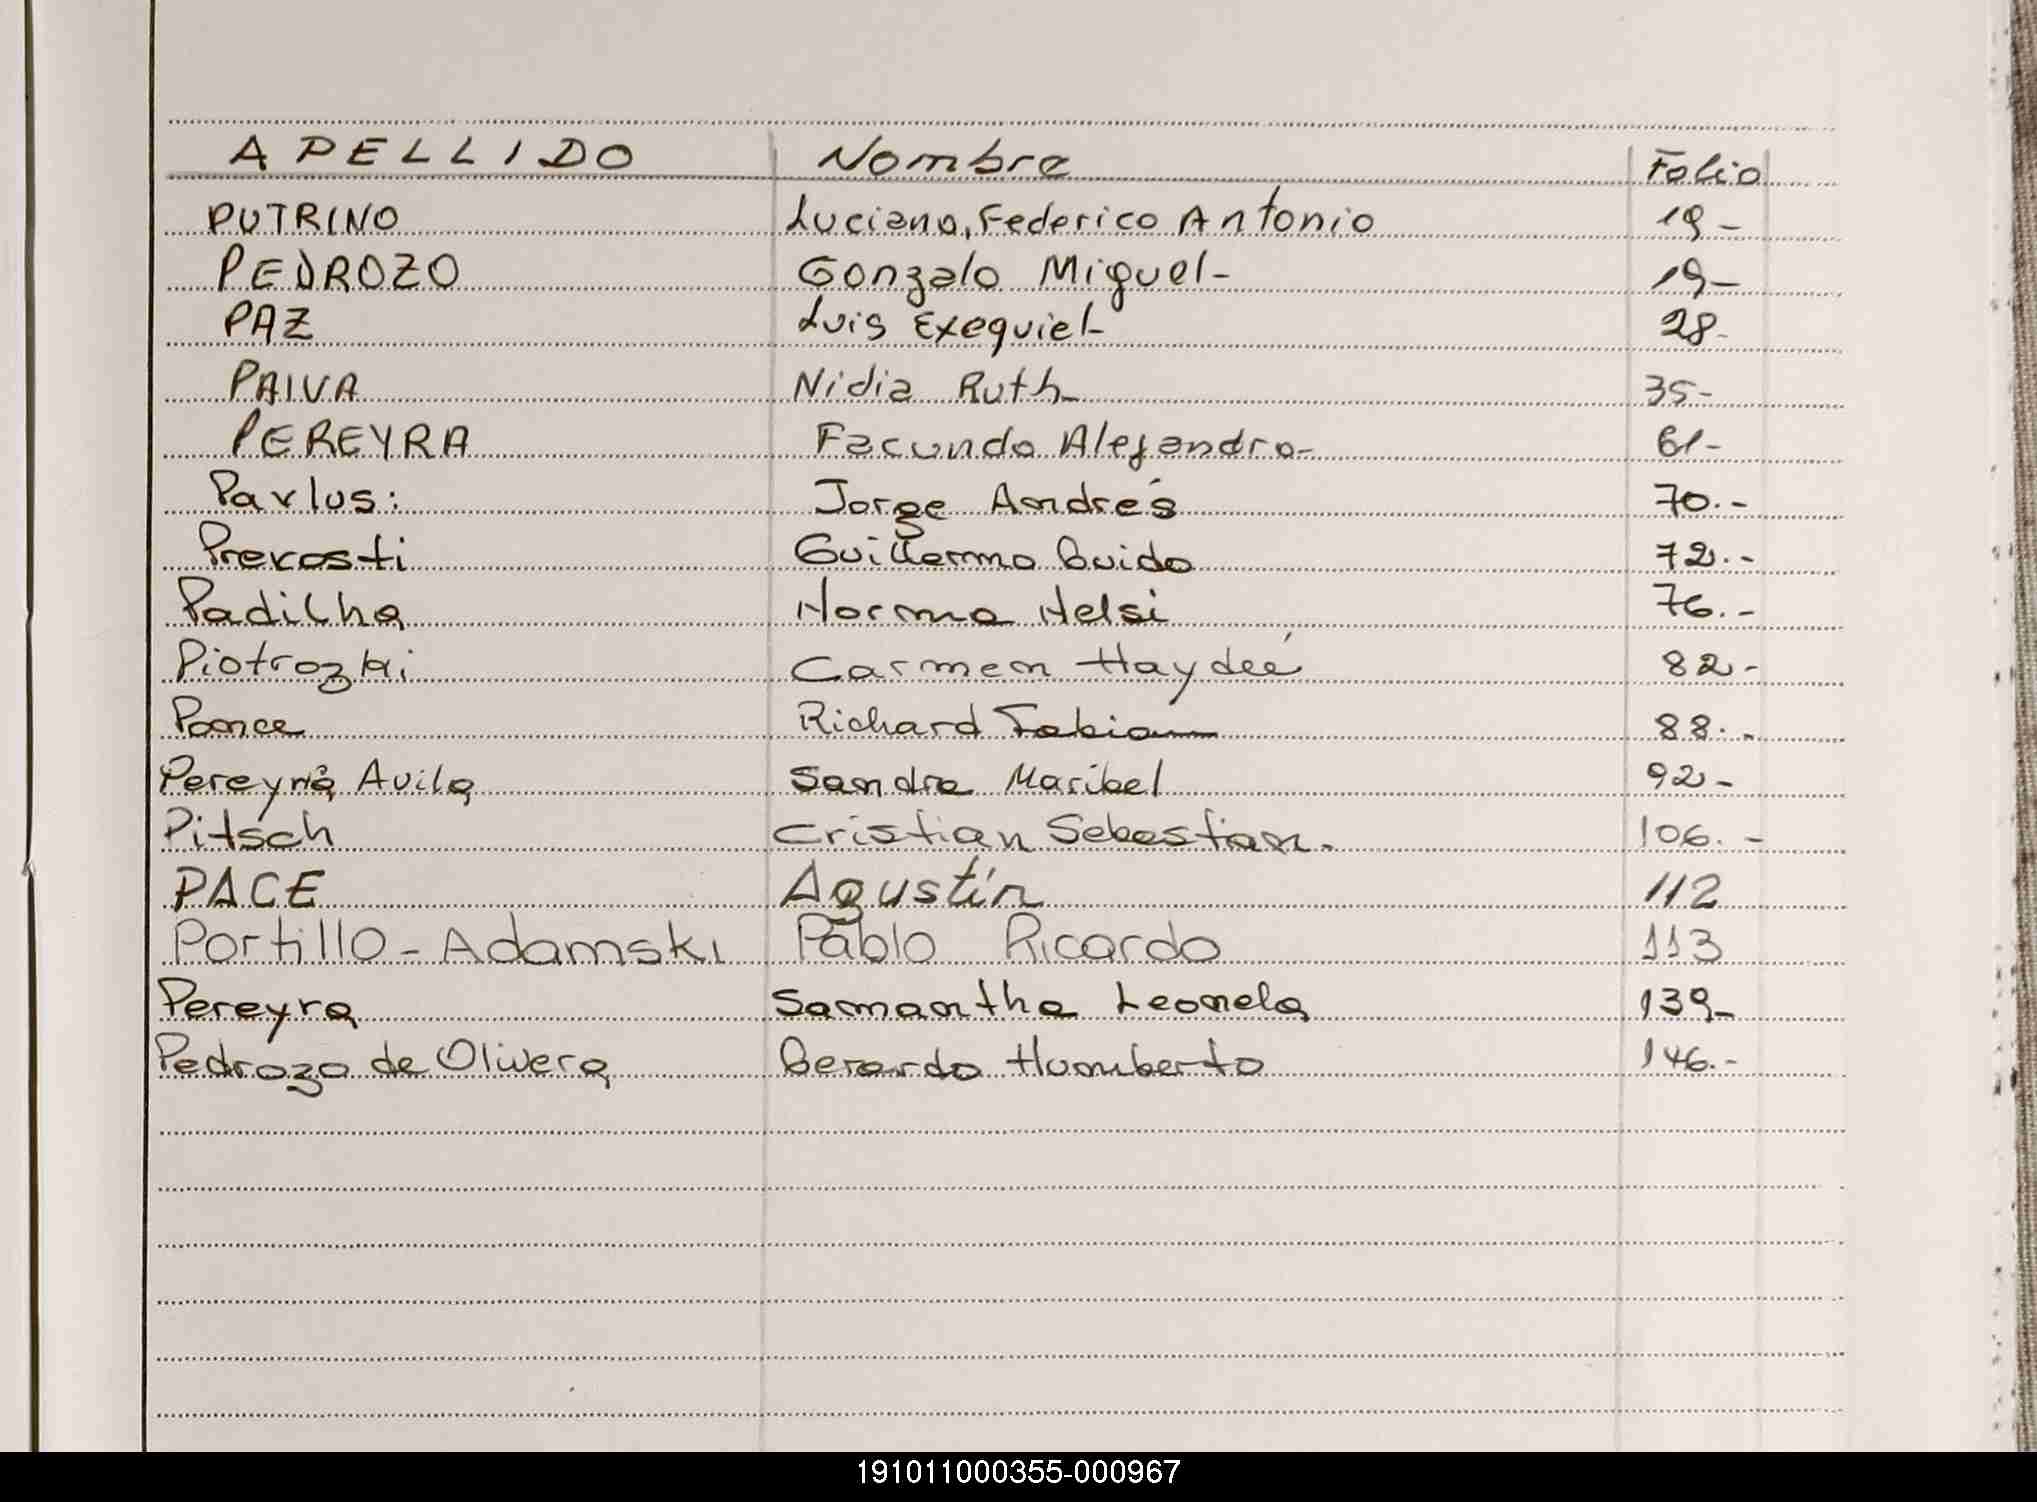 APELLIDO Nombre Folio
PUTRINO Luciano, Federico Antonio 19-
PEDROZO Gonzalo Miguel- 19-
PAZ Luis Exequiel- 28-
PAIVA Nidia Ruth- 35-
PEREYRA Facundo Alejandro- 61-
Pavlus: Jorge Andrés 70.-
Prevosti Guillermo Guido 72.-
Padilha Norma Helsi 76.-
Piotrozki Carmen Haydeé 82-
Ponce Richard Fabian 88.-
Pereyra Avila Sandra Maribel 92-
Pitsch Cristian Sebastian. 106.-
PACE Agustín 112
Portillo-Adamski Pablo Ricardo 113
Pereyra Samantha Leonela 139-
Pedrozo de Olivera Gerardo Humberto 146.-
191011000355-000967